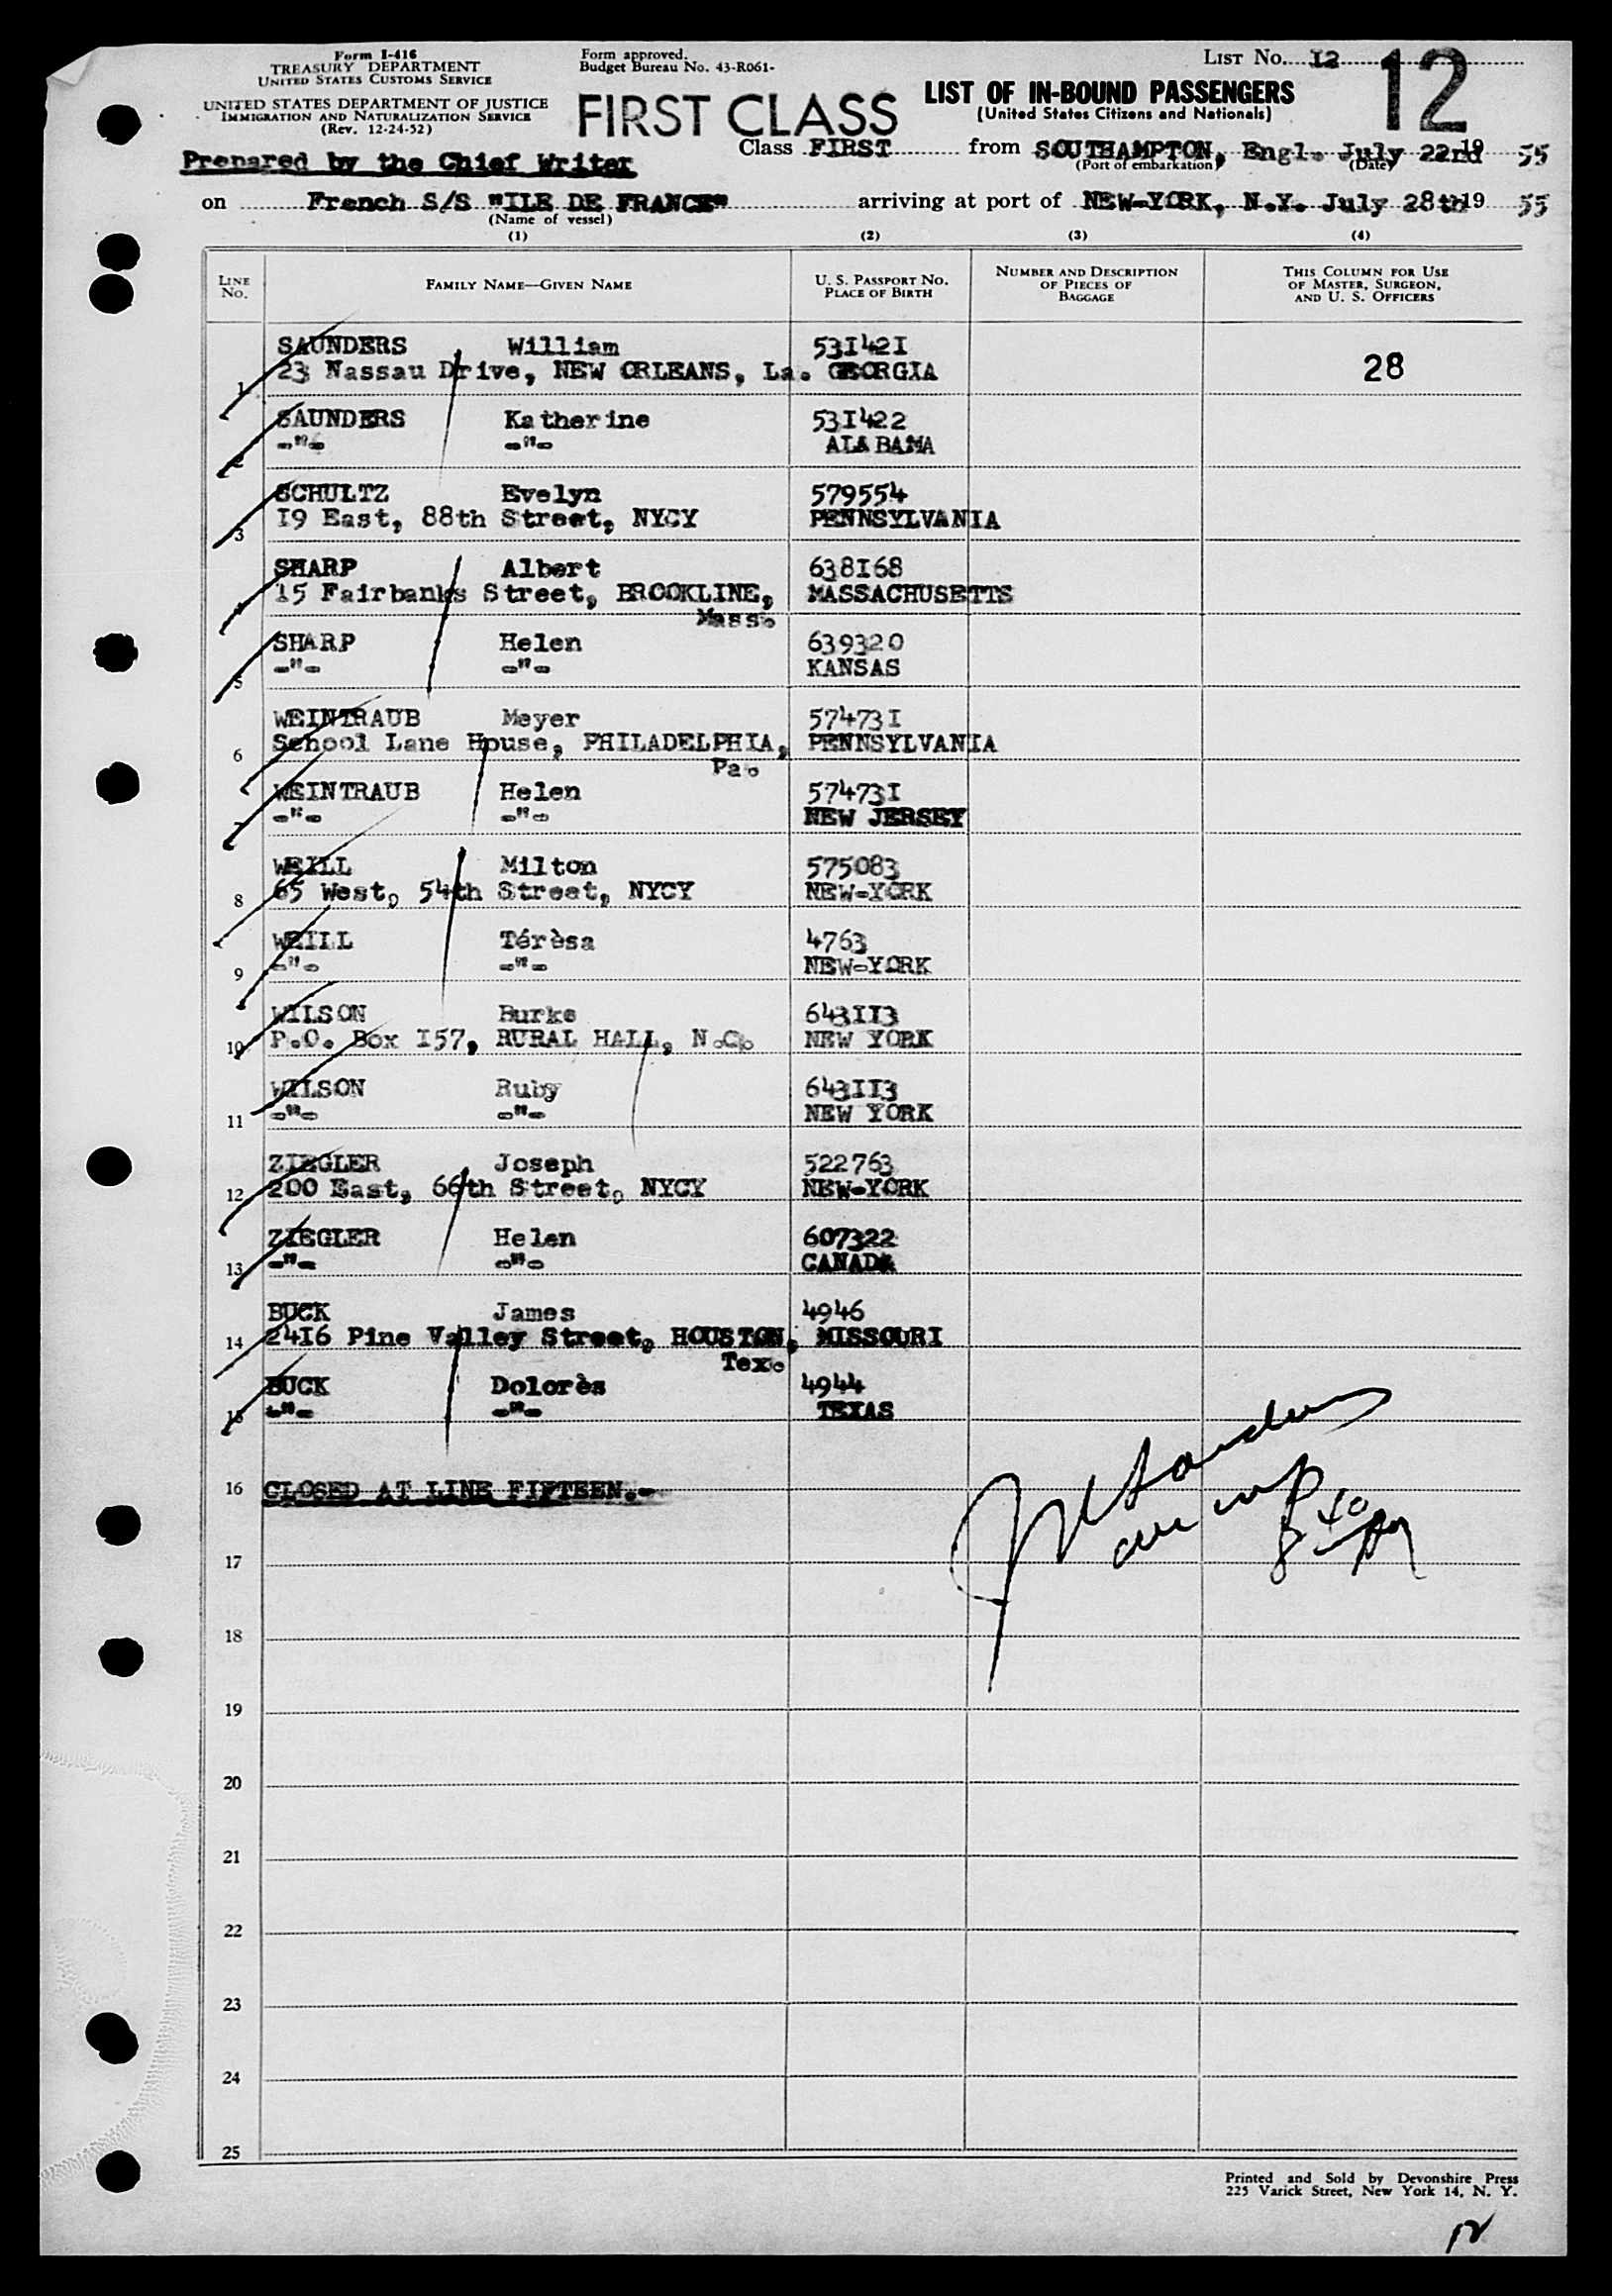 Form I-416
TREASURY DEPARTMENT
UNITED STATES CUSTOMS SERVICE
UNITED STATES DEPARTMENT OF JUSTICE
IMMIGRATION AND NATURALIZATION SERVICE
(Rev. 12-24-52)
Form approved.
Budget Bureau No. 43-R061-
LIST No. 12
12
FIRST CLASS
LIST OF IN-BOUND PASSENGERS
(United States Citizens and Nationals)
Prepared by the Chief Writer
Class FIRST from SOUTHAMPTON, Engl. July 22nd 19 55
(Port of embarkation) (Date)
on French S/S "ILE DE FRANCE" arriving at port of NEW-YORK, N.Y. July 28th 19 55
(Name of vessel)
(1) (2) (3) (4)
LINE No. FAMILY NAME—GIVEN NAME U. S. PASSPORT No. PLACE OF BIRTH NUMBER AND DESCRIPTION OF PIECES OF BAGGAGE THIS COLUMN FOR USE OF MASTER, SURGEON, AND U. S. OFFICERS
SAUNDERS William 531421
1 23 Nassau Drive, NEW ORLEANS, La. GEORGIA 28
SAUNDERS Katherine 531422
2 -"- -"- ALABAMA
SCHULTZ Evelyn 579554
3 19 East, 88th Street, NYCY PENNSYLVANIA
SHARP Albert 638168
4 15 Fairbanks Street, BROOKLINE, MASSACHUSETTS
Mass.
SHARP Helen 639320
5 -"- -"- KANSAS
WEINTRAUB Meyer 574731
6 School Lane House, PHILADELPHIA, PENNSYLVANIA
Pa.
WEINTRAUB Helen 574731
7 -"- -"- NEW JERSEY
WEILL Milton 575083
8 65 West, 54th Street, NYCY NEW-YORK
WEILL Térèsa 4763
9 -"- -"- NEW-YORK
WILSON Burke 643113
10 P.O. Box 157, RURAL HALL, N.C. NEW YORK
WILSON Ruby 643113
11 -"- -"- NEW YORK
ZIEGLER Joseph 522763
12 200 East, 66th Street, NYCY NEW-YORK
ZIEGLER Helen 607322
13 -"- -"- CANADA
BUCK James 4946
14 2416 Pine Valley Street, HOUSTON, MISSOURI
Tex.
BUCK Dolorès 4944
15 -"- -"- TEXAS
16 CLOSED AT LINE FIFTEEN.-
17
18
19
20
21
22
23
24
25
Printed and Sold by Devonshire Press
225 Varick Street, New York 14, N. Y.
12